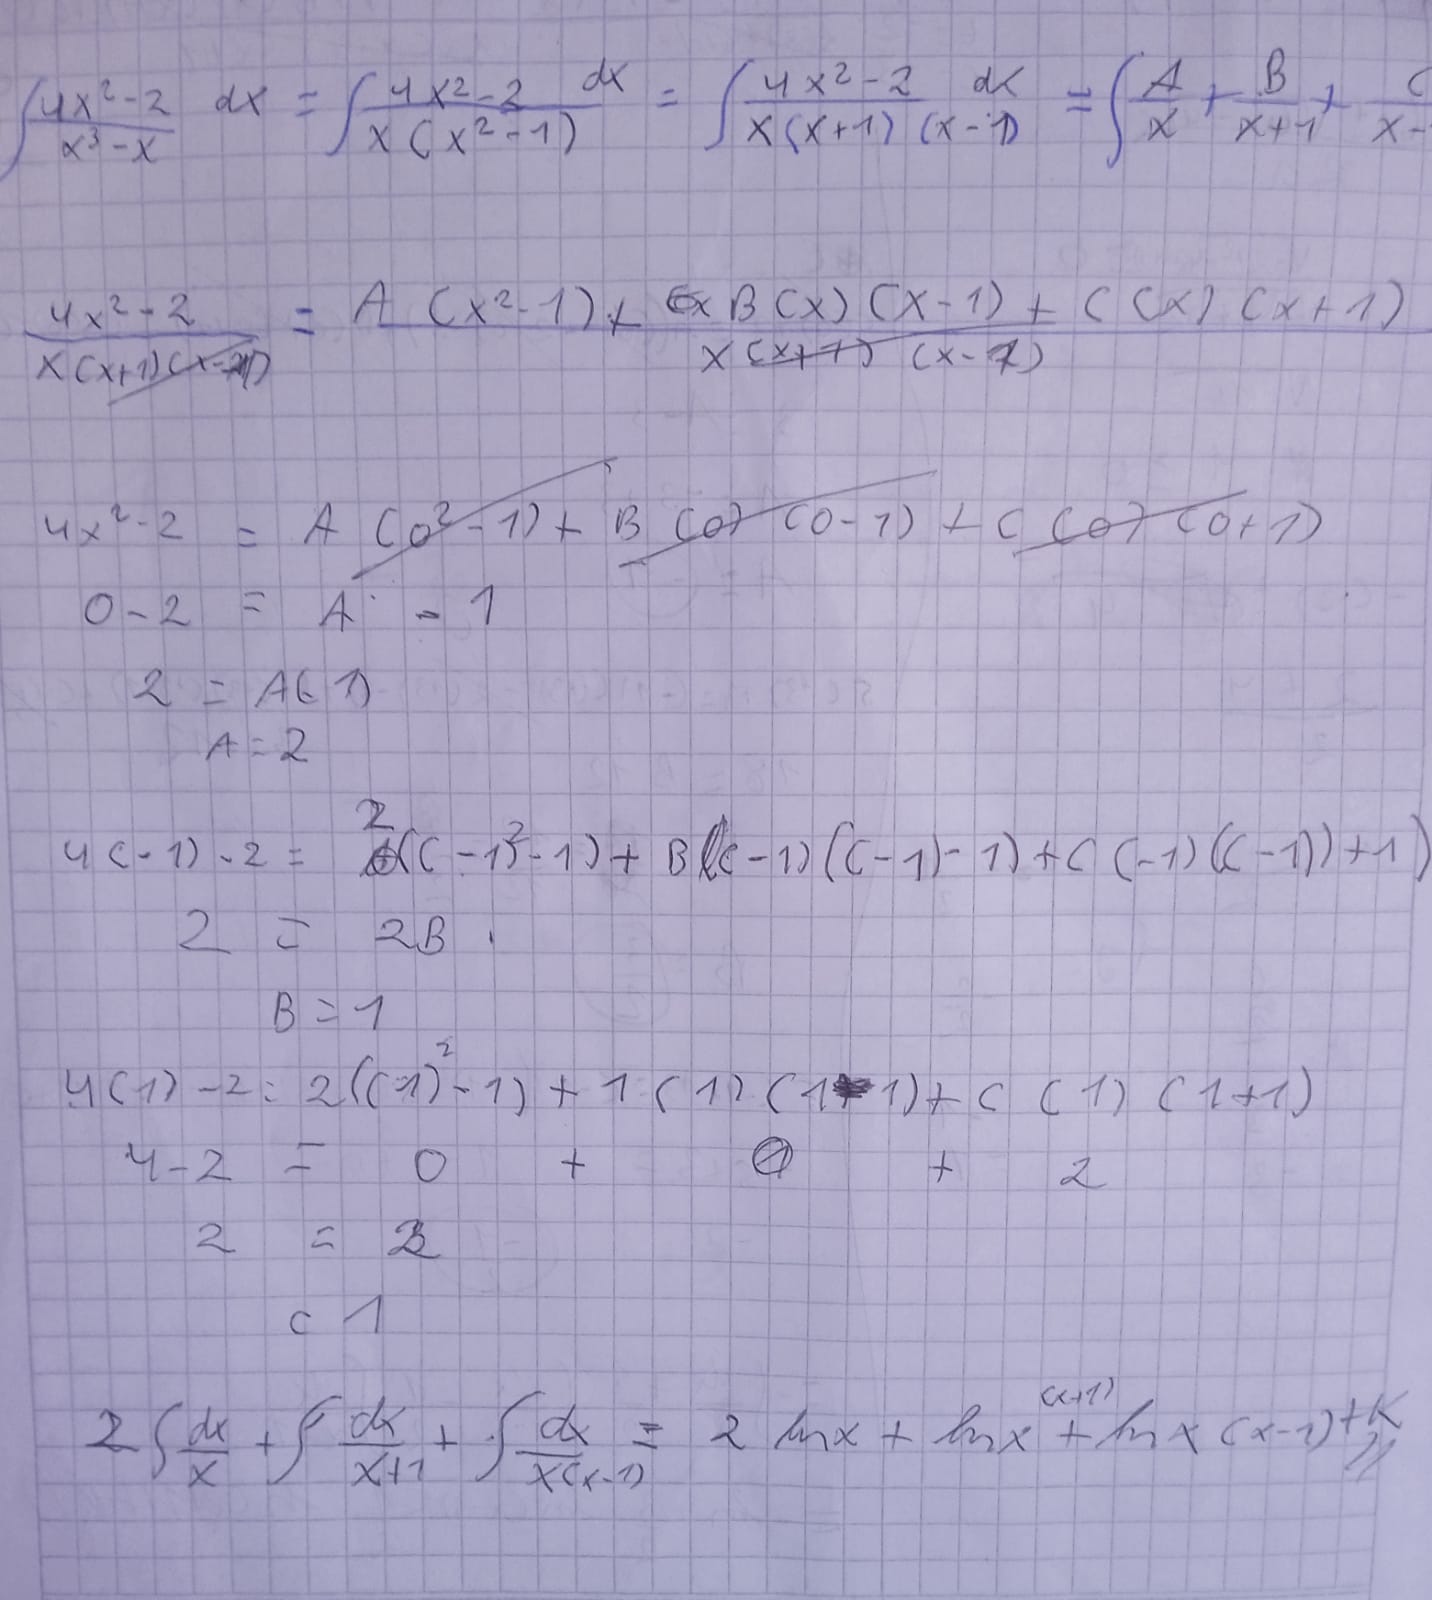 ∫ 4x²-2 / x³-x dx = ∫ 4x²-2 / x(x²-1) dx = ∫ 4x²-2 / x(x+1)(x-1) dx = ∫ A/x + B/x+1 + C/x-
4x²-2 / x(x+1)(x-1) = A(x²-1) + B(x)(x-1) + C(x)(x+1) / x(x+1)(x-1)
4x²-2 = A(0²-1) + B(0)(0-1) + C(0)(0+1)
0-2 = A · -1
2 = A(-1)
A = 2
4(-1)-2 = 2((-1)²-1) + B((-1)((-1)-1) + C(-1)((-1))+1)
2 = 2B
B = 1
4(1)-2 = 2((1)²-1) + 1(1)(1-1) + C(1)(1+1)
4-2 = 0 + 0 + 2
2 = 2
C 1
2∫ dx/x + ∫ dx/x+1 + ∫ dx/x(x-1) = 2 lnx + lnx (x+1) + ln x(x-1) + K //